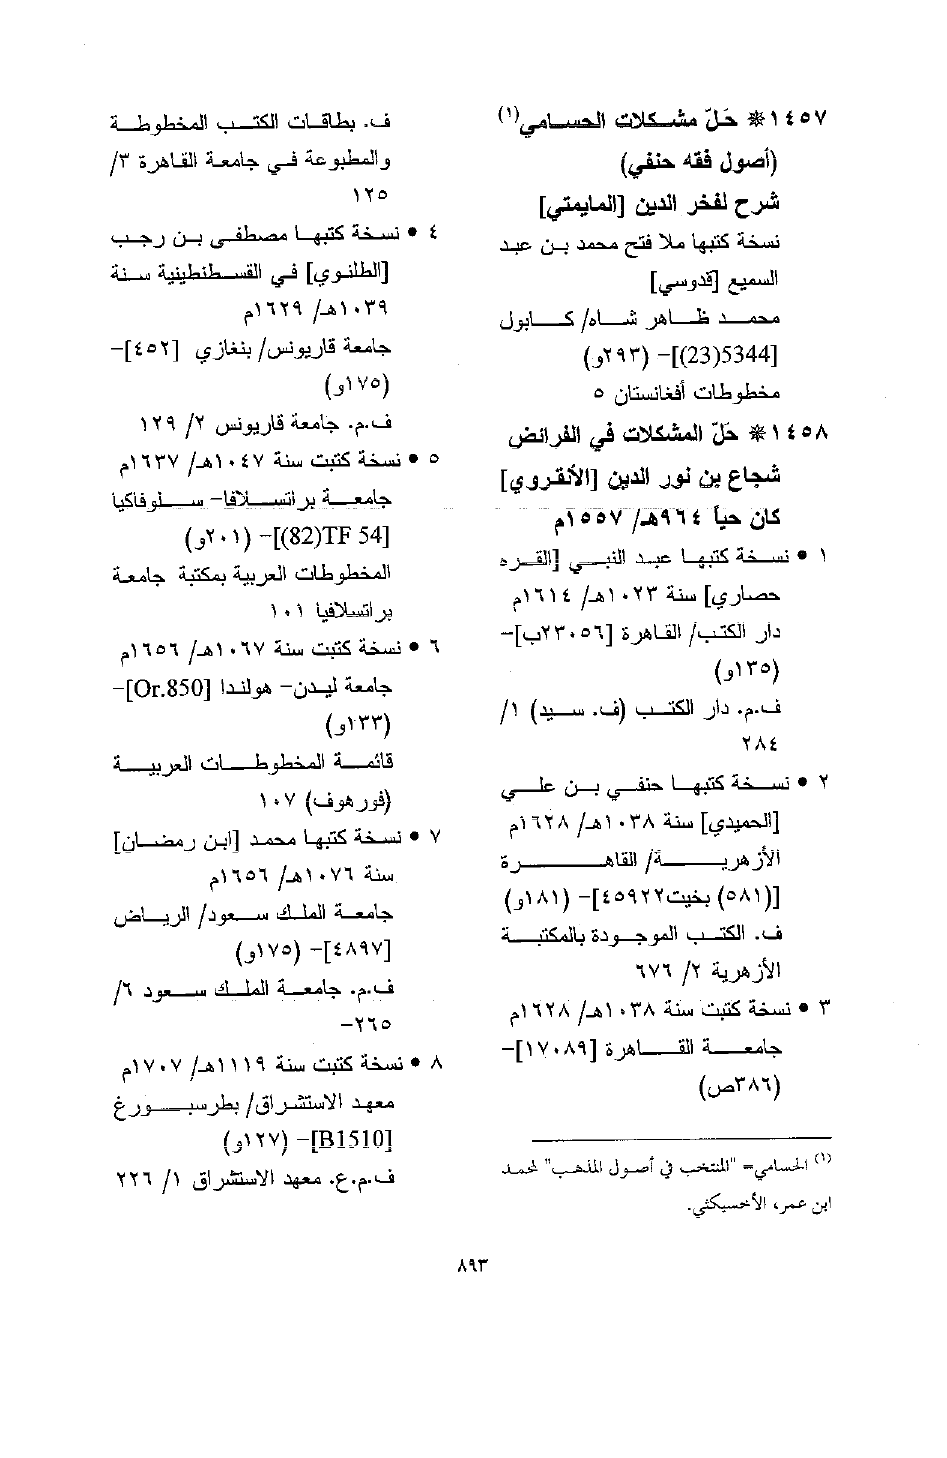 ١٤٥٧* حَلّ مشكلات الحسامي(١)
(أصول فقه حنفي)
شرح لفخر الدين [المايمتي]
نسخة كتبها ملا فتح محمد بن عبد
السميع [قدوسي]
محمد ظاهر شاه/ كابول
[5344(23)]- (٢٩٣و)
مخطوطات أفغانستان ٥
١٤٥٨* حَلّ المشكلات في الفرائض
شجاع بن نور الدين [الأنقروي]
كان حياً ٩٦٤هـ/ ١٥٥٧م
١ • نسخة كتبها عبد النبي [القره
حصاري] سنة ١٠٢٣هـ/ ١٦١٤م
دار الكتب/ القاهرة [٢٣٠٥٦ب]-
(١٣٥و)
ف.م. دار الكتب (ف. سيد) ١/
٢٨٤
٢ • نسخة كتبها حنفي بن علي
[الحميدي] سنة ١٠٣٨هـ/ ١٦٢٨م
الأزهرية/ القاهرة
[(٥٨١) بخيت٤٥٩٢٢]- (١٨١و)
ف. الكتب الموجودة بالمكتبة
الأزهرية ٢/ ٦٧٦
٣ • نسخة كتبت سنة ١٠٣٨هـ/ ١٦٢٨م
جامعة القاهرة [١٧٠٨٩]-
(٣٨٦ص)
(١) الحسامي= "المنتخب في أصول المذهب" لمحمد
ابن عمر، الأخسيكثي.
ف. بطاقات الكتب المخطوطة
والمطبوعة في جامعة القاهرة ٣/
١٢٥
٤ • نسخة كتبها مصطفى بن رجب
[الطلنوي] في القسطنطينية سنة
١٠٣٩هـ/ ١٦٢٩م
جامعة قاريونس/ بنغازي [٤٥٢]-
(١٧٥و)
ف.م. جامعة قاريونس ٢/ ١٢٩
٥ • نسخة كتبت سنة ١٠٤٧هـ/ ١٦٣٧م
جامعة براتسلافا- سلوفاكيا
[(82)TF 54]- (٢٠١و)
المخطوطات العربية بمكتبة جامعة
براتسلافيا ١٠١
٦ • نسخة كتبت سنة ١٠٦٧هـ/ ١٦٥٦م
جامعة ليدن- هولندا [Or.850]-
(١٣٣و)
قائمة المخطوطات العربية
(فورهوف) ١٠٧
٧ • نسخة كتبها محمد [ابن رمضان]
سنة ١٠٧٦هـ/ ١٦٥٦م
جامعة الملك سعود/ الرياض
[٤٨٩٧]- (١٧٥و)
ف.م. جامعة الملك سعود ٦/
٢٦٥-
٨ • نسخة كتبت سنة ١١١٩هـ/ ١٧٠٧م
معهد الاستشراق/ بطرسبورغ
[B1510]- (١٢٧و)
ف.م.ع. معهد الاستشراق ١/ ٢٢٦
٨٩٣